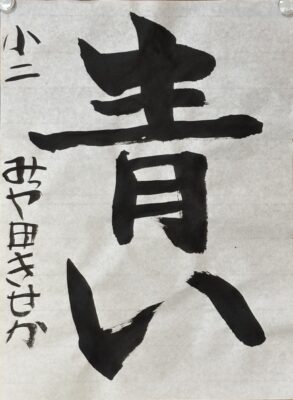 青い
小二
みや田きせか